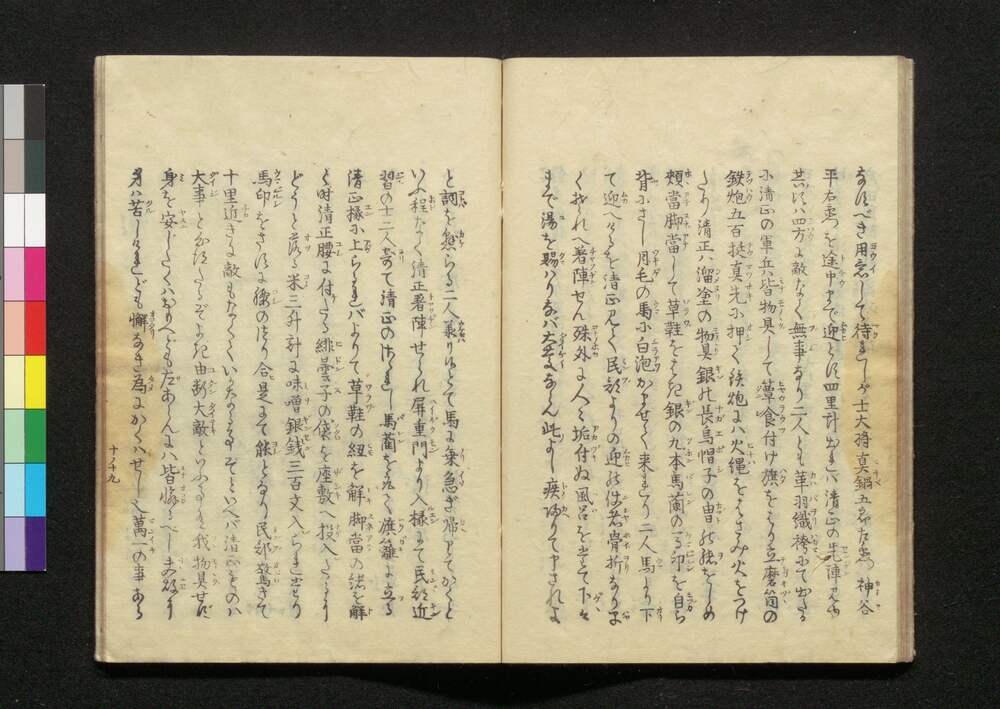 なすべき用意して待れしが士大将真鍋五郎右衛門神谷
平右衛門を途中まで迎とす四里計出れバ清正の先陣見ゆ
共にハ四方に敵なく無事なり二人とも革羽織袴にて出たる
に清正の軍兵ハ皆物具して蕈食付け旗をさし立磨筒の
鉄炮五百挺真先に押て鉄炮にハ火縄をはさみ火をつけ
たり清正ハ溜塗の物具銀の長烏帽子の冑の緒をしめ
頬當脚當して草鞋をはき銀の九本馬藺の馬印を自ら
背にさし月毛の馬に白泡かませて来れり二人馬より下
て迎へけるを清正見て民部よりの迎の使者骨折なりや
く我れへ着陣せん殊外に人に垢付ぬ風呂を立て下々
まで湯を賜ハりなバ大慶ならん此よし疾帰りて申されよ
と詞を懸らる二人承りぬとて馬に乗急ぎ帰りてかくと
いふ程なく清正着陣せられ屏重門より入椽にて民部近
習の士二人寄て清正のさゝれし馬藺をぬく旗籠に立る
清正椽に上られバよりて草鞋の紐を解脚當の緒を解
く時清正腰に付たる緋曇子の袋を座敷へ投入たるより
どうと落つ米三升計に味噌銀銭三百文入られ出せり
馬印をさすに腰のはり合是にて能となり民部驚きて
十里近きに敵もなくていかなる事ぞといへバ清正其のハ
大事とおほしたるぞよき由断大敵といふなり我物具せで
身を安じたくハおもへども左あらんにハ皆怠るべし夫故
身ハ苦しけれども懈なき為にかくハせし也萬一の事ある
十ノ十九